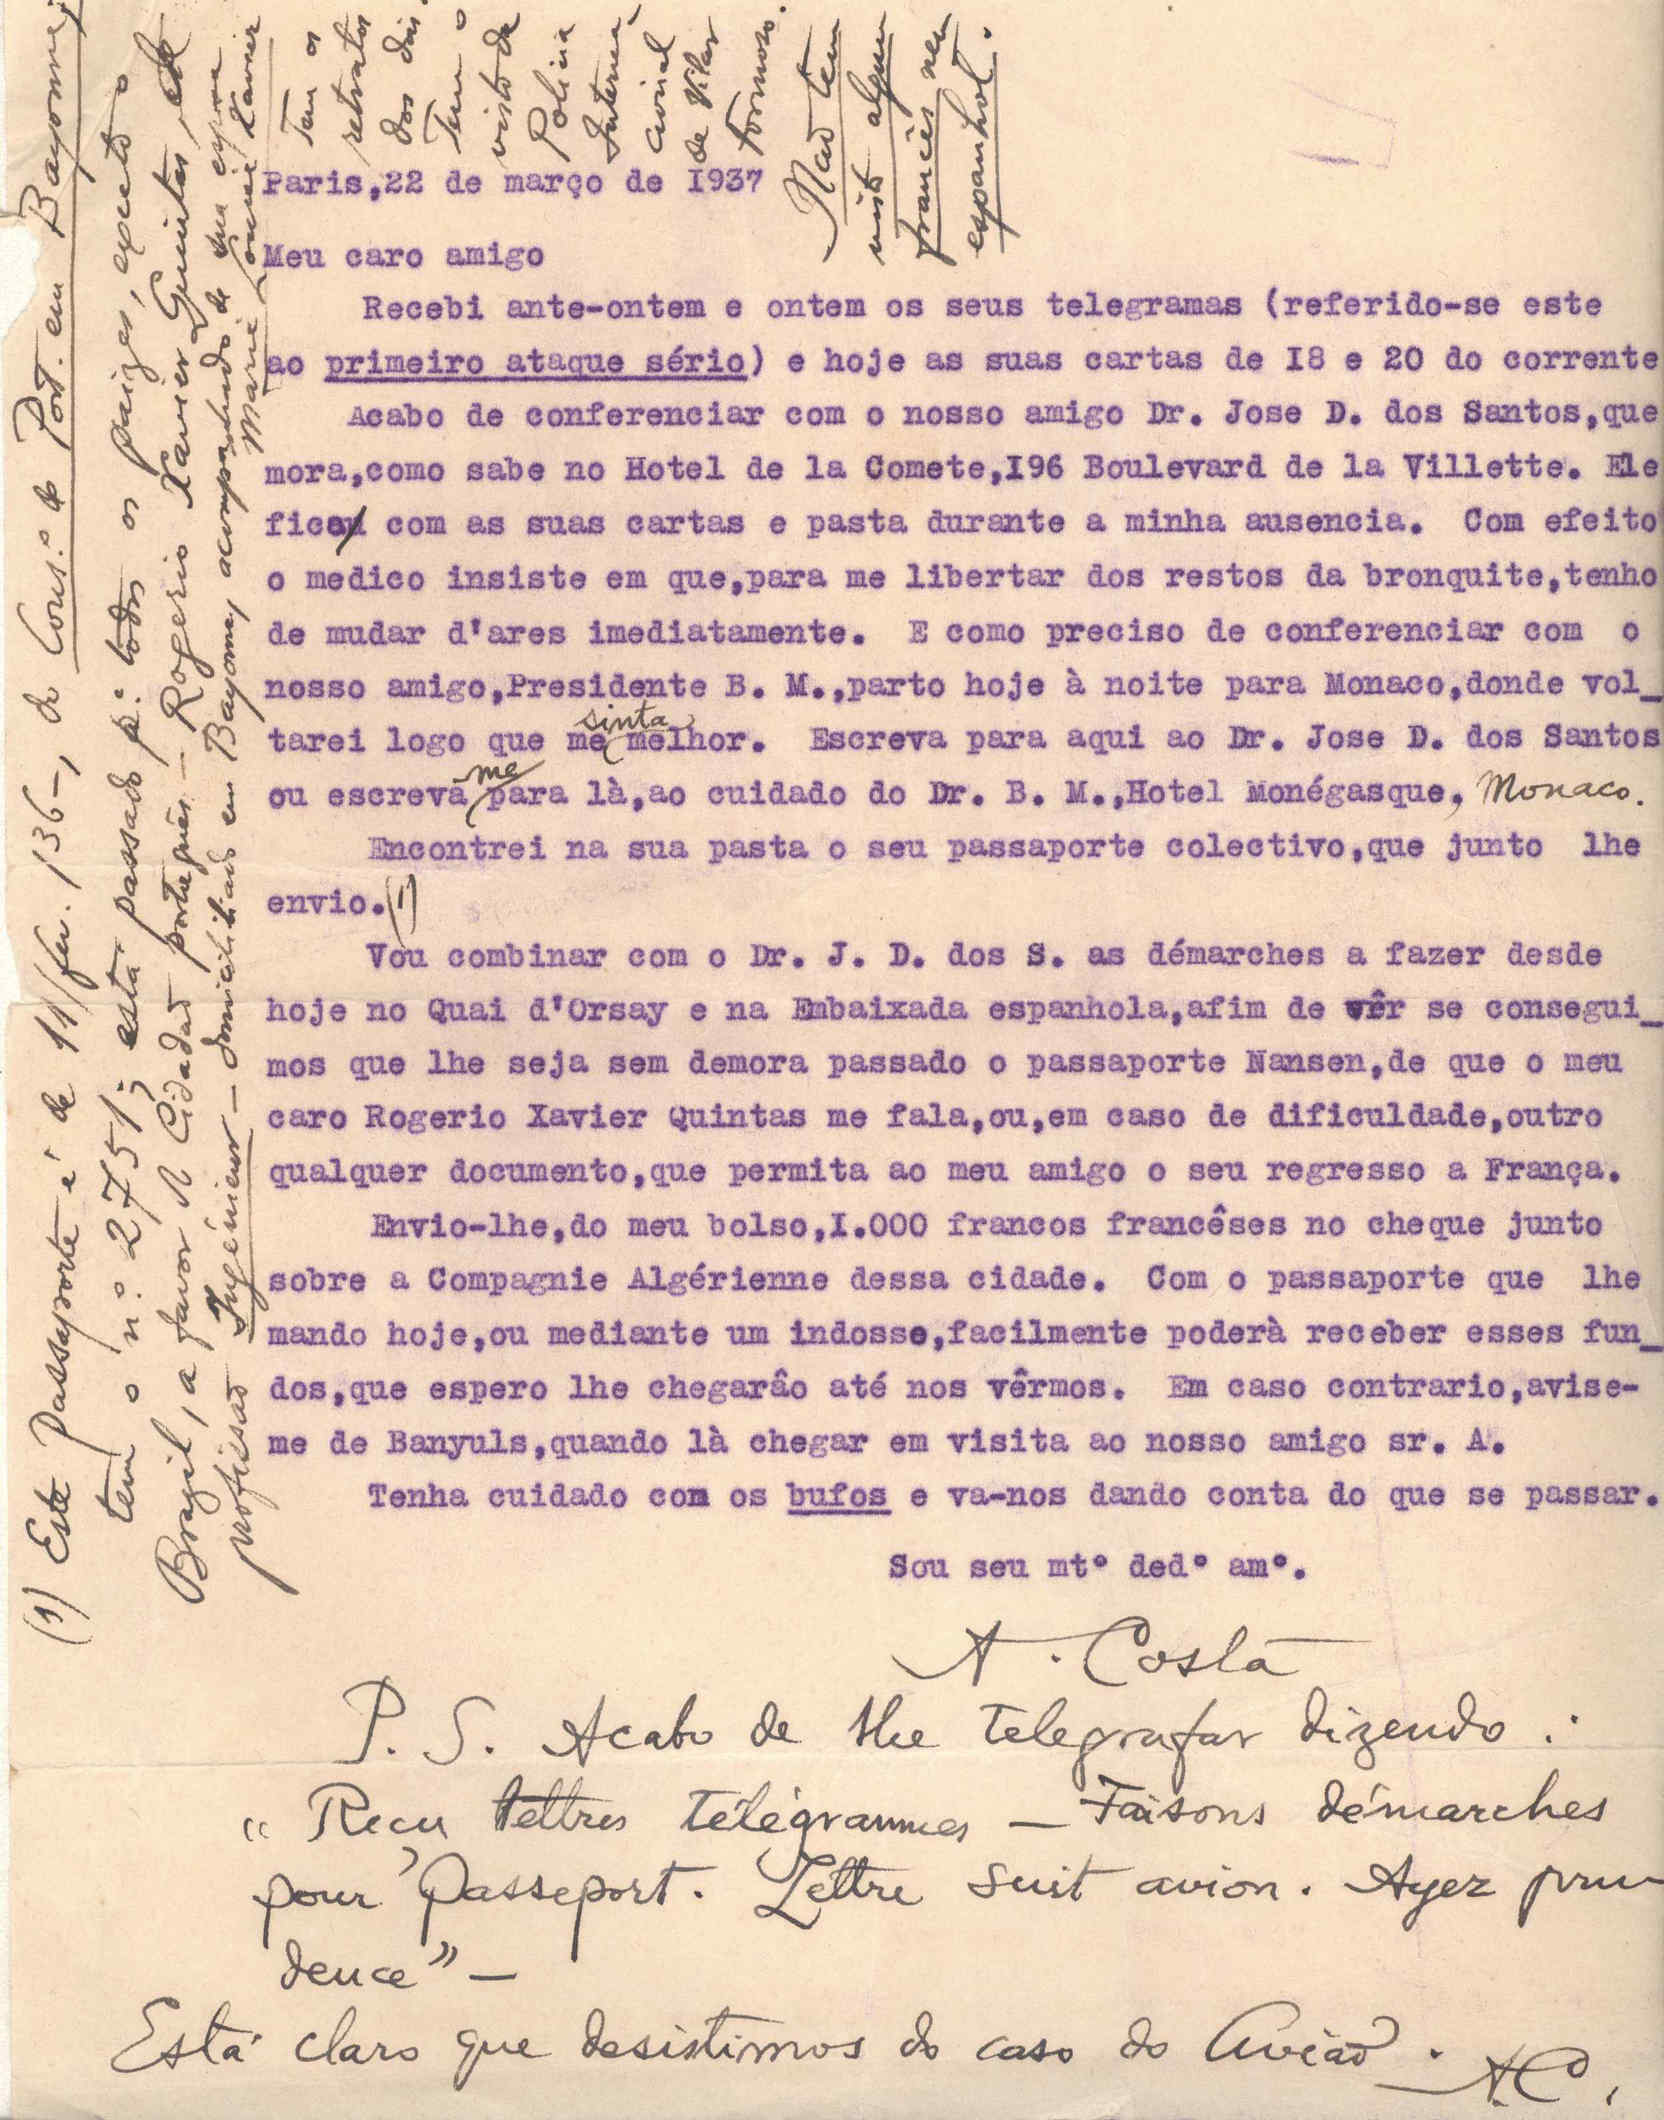 Paris,22 de março de I937
Meu caro amigo
Recebi ante-ontem e ontem os seus telegramas (referido-se este
ao primeiro ataque sério) e hoje as suas cartas de I8 e 20 do corrente
Acabo de conferenciar com o nosso amigo Dr. Jose D. dos Santos,que
mora,como sabe no Hotel de la Comete,I96 Boulevard de la Villette. Ele
fica com as suas cartas e pasta durante a minha ausencia. Com efeito
o medico insiste em que,para me libertar dos restos da bronquite,tenho
de mudar d'ares imediatamente. E como preciso de conferenciar com o
nosso amigo,Presidente B. M.,parto hoje à noite para Monaco,donde vol_
tarei logo que me sinta melhor. Escreva para aqui ao Dr. Jose D. dos Santos
ou escreva-me para là,ao cuidado do Dr. B. M.,Hotel Monégasque, Monaco.
Encontrei na sua pasta o seu passaporte colectivo,que junto lhe
envio.(1)
Vou combinar com o Dr. J. D. dos S. as démarches a fazer desde
hoje no Quai d'Orsay e na Embaixada espanhola,afim de vêr se consegui_
mos que lhe seja sem demora passado o passaporte Nansen,de que o meu
caro Rogerio Xavier Quintas me fala,ou,em caso de dificuldade,outro
qualquer documento,que permita ao meu amigo o seu regresso a França.
Envio-lhe,do meu bolso,I.000 francos francêses no cheque junto
sobre a Compagnie Algérienne dessa cidade. Com o passaporte que lhe
mando hoje,ou mediante um indosse,facilmente poderà receber esses fun_
dos,que espero lhe chegarâo até nos vêrmos. Em caso contrario,avise-
me de Banyuls,quando là chegar em visita ao nosso amigo sr. A.
Tenha cuidado com os bufos e va-nos dando conta do que se passar.
Sou seu mtº dedº amº.
A. Costa
P. S. Acabo de lhe telegrafar dizendo :
"Reçu lettres télégrammes — Faisons démarches
pour passeport. Lettre suit avion. Ayez pru-
dence" —
Está claro que desistimos do caso do avião. A.C.
(1) Este passaporte é de 11/fev. 136-, do Cons.º de Port. em Bayonne,
tem o nº 2751; está passado pª todos os paizes, exceto o
Brazil, a favor do Cidadão português – Rogerio Xavier Quintas, de
profissão Ingénieur – domiciliado em Bayonne, acompanhado de sua esposa
Marie Xavier
Tem os
retratos
dos dois.
Tem o
visto da
Policia
Interna-
cional
de Vilar
Formoso.
Não tem
visto algum
francês nem
espanhol.